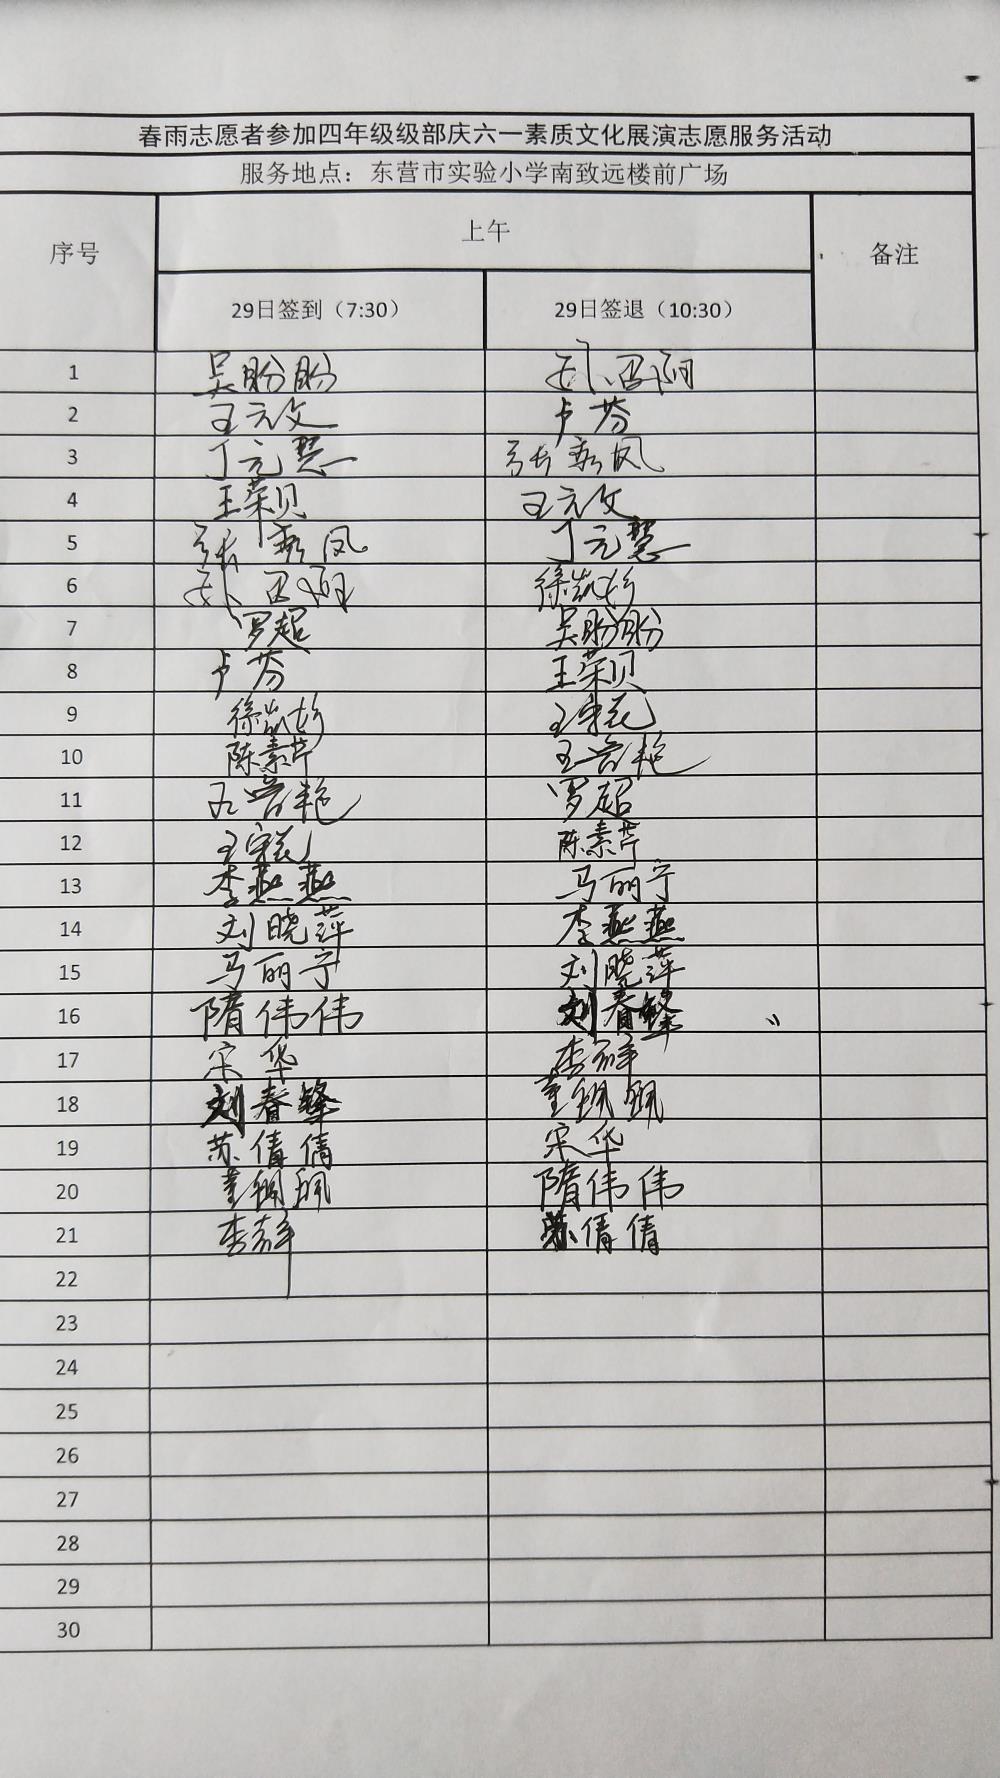 春雨志愿者参加四年级级部庆六一素质文化展演志愿服务活动
服务地点：东营市实验小学南致远楼前广场
序号 上午 备注
29日签到（7:30） 29日签退（10:30）
1 吴盼盼
2 王元文 卢芬
3 丁元慧 张燕凤
4 王荣贝 王元文
5 张燕凤 丁元慧
6 徐凯彬
7 罗超 吴盼盼
8 卢芬 王荣贝
9 徐凯彬 王宋花
10 陈素芹 王兴艳
11 王兴艳 罗超
12 王宋花 陈素芹
13 李燕燕 马丽宁
14 刘晓萍 李燕燕
15 马丽宁 刘晓萍
16 隋伟伟 刘春锋
17 宋华
18 刘春锋 董佩佩
19 苏倩倩 宋华
20 董佩佩 隋伟伟
21 苏倩倩
22
23
24
25
26
27
28
29
30